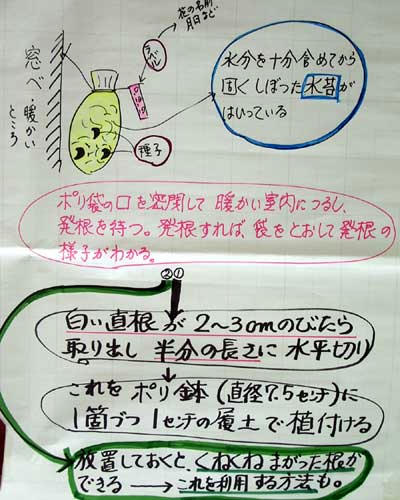 花の名前
月日など
ラベル
窓べ・暖かい
ところ
種子
水分を十分含めてから
固くしぼった水苔が
はいっている
ポリ袋の口を密閉して暖かい室内につるし、
発根を待つ。発根すれば袋をとおして発根の
様子がわかる。
②①
白い直根が2～3cmのびたら
取り出し半分の長さに水平切り
これをポリ鉢(直径7.5センチ)に
1箇づつ1センチの覆土で植付ける
放置しておくと、くねくねまがった根が
できる→これを利用する方法も。